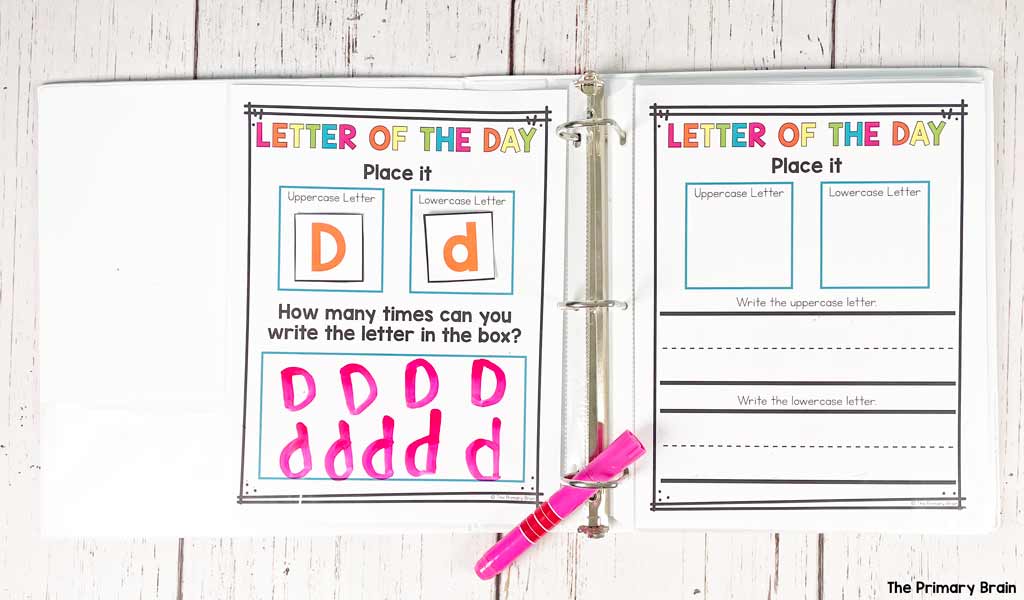 LETTER OF THE DAY
Place it
Uppercase Letter
Lowercase Letter
D
d
How many times can you
write the letter in the box?
D D D D
d d d d d
© The Primary Brain
LETTER OF THE DAY
Place it
Uppercase Letter
Lowercase Letter
Write the uppercase letter.
Write the lowercase letter.
© The Primary Brain
The Primary Brain